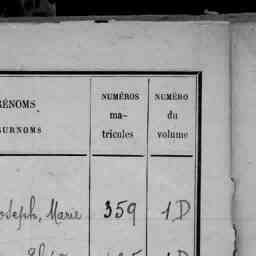 RÉNOMS
SURNOMS
NUMÉROS
ma-
tricules
NUMÉRO
du
volume
oseph, Marie 359 1 D